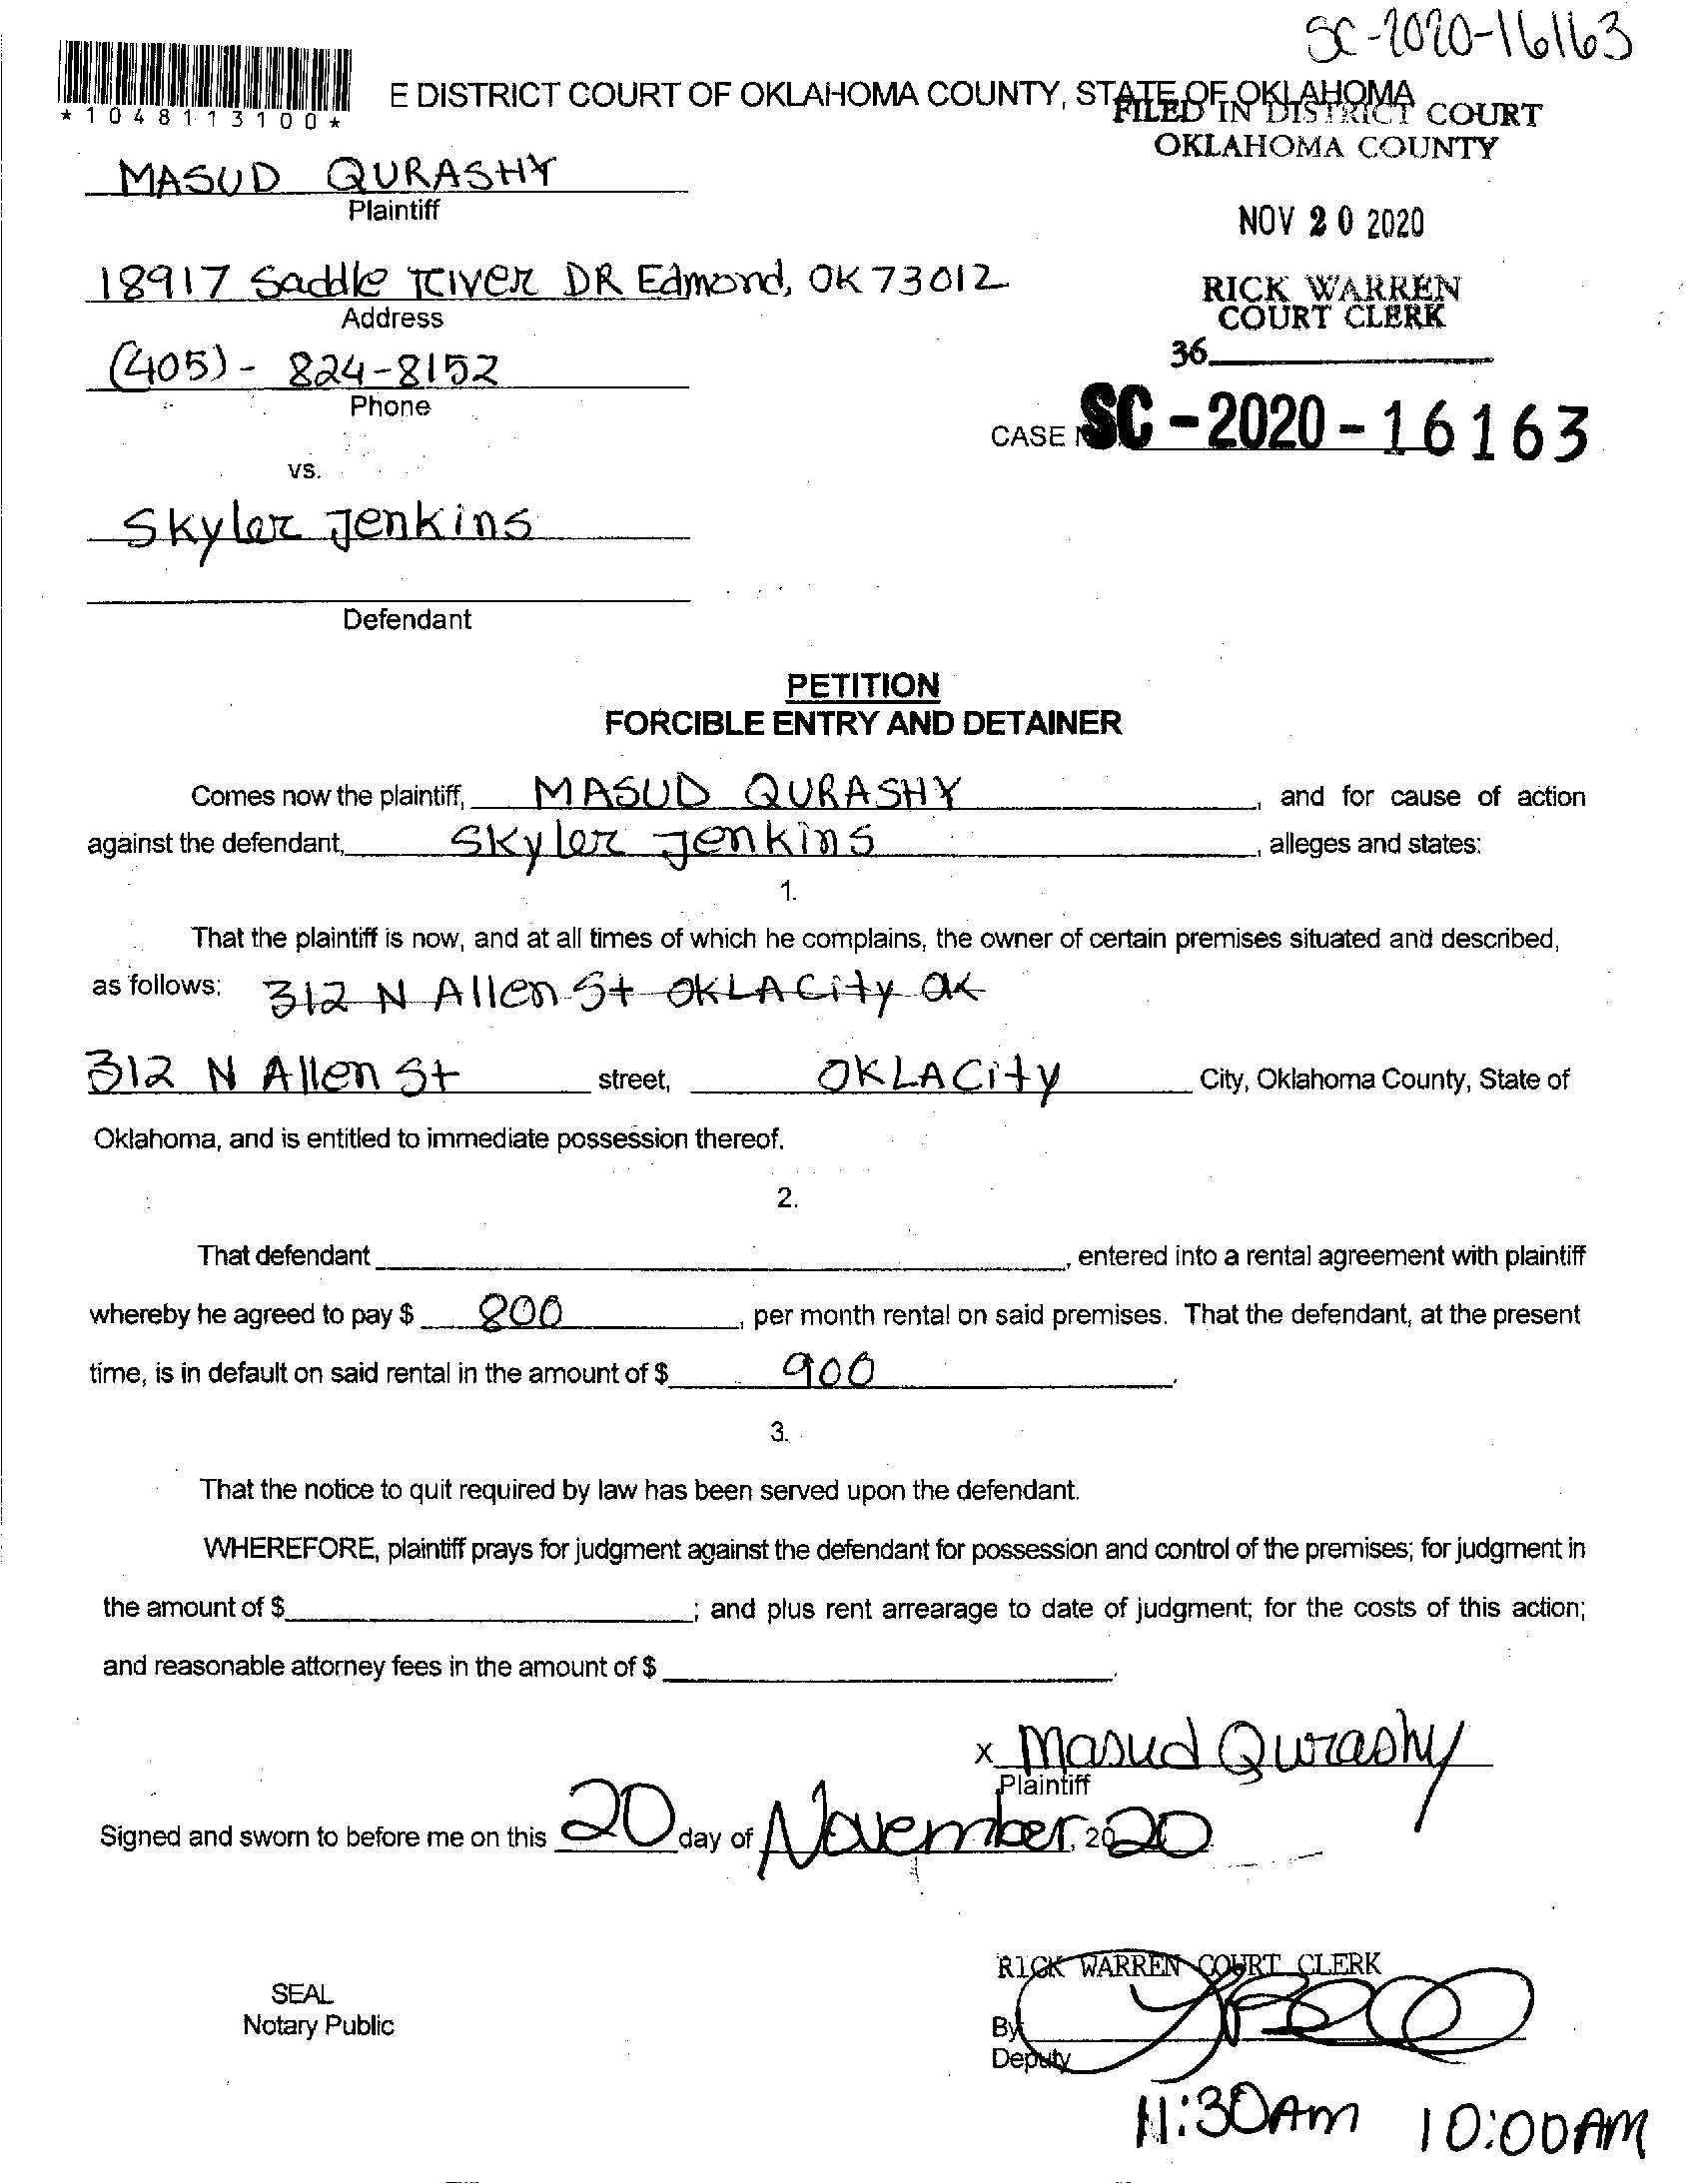 SC-2020-16163
*1048113100*
E DISTRICT COURT OF OKLAHOMA COUNTY, STATE OF OKLAHOMA
FILED IN DISTRICT COURT
OKLAHOMA COUNTY
MASUD QURASHY
Plaintiff
NOV 20 2020
18917 Saddle River DR Edmond, OK 73012
Address
RICK WARREN
COURT CLERK
36
(405) - 824-8152
Phone
CASE SC-2020-16163
vs.
Skyler Jenkins
Defendant
PETITION
FORCIBLE ENTRY AND DETAINER
Comes now the plaintiff, MASUD QURASHY, and for cause of action
against the defendant, Skyler Jenkins, alleges and states:
1.
That the plaintiff is now, and at all times of which he complains, the owner of certain premises situated and described,
as follows: 312 N Allen St OKLACity OK
312 N Allen St street, OKLACity City, Oklahoma County, State of
Oklahoma, and is entitled to immediate possession thereof.
2.
That defendant , entered into a rental agreement with plaintiff
whereby he agreed to pay $ 800, per month rental on said premises. That the defendant, at the present
time, is in default on said rental in the amount of $ 900.
3.
That the notice to quit required by law has been served upon the defendant.
WHEREFORE, plaintiff prays for judgment against the defendant for possession and control of the premises; for judgment in
the amount of $ ; and plus rent arrearage to date of judgment; for the costs of this action;
and reasonable attorney fees in the amount of $ .
x Masud Qurashy
Plaintiff
Signed and sworn to before me on this 20 day of November, 2020.
RICK WARREN COURT CLERK
SEAL
Notary Public
By
Deputy
11:30AM 10:00AM